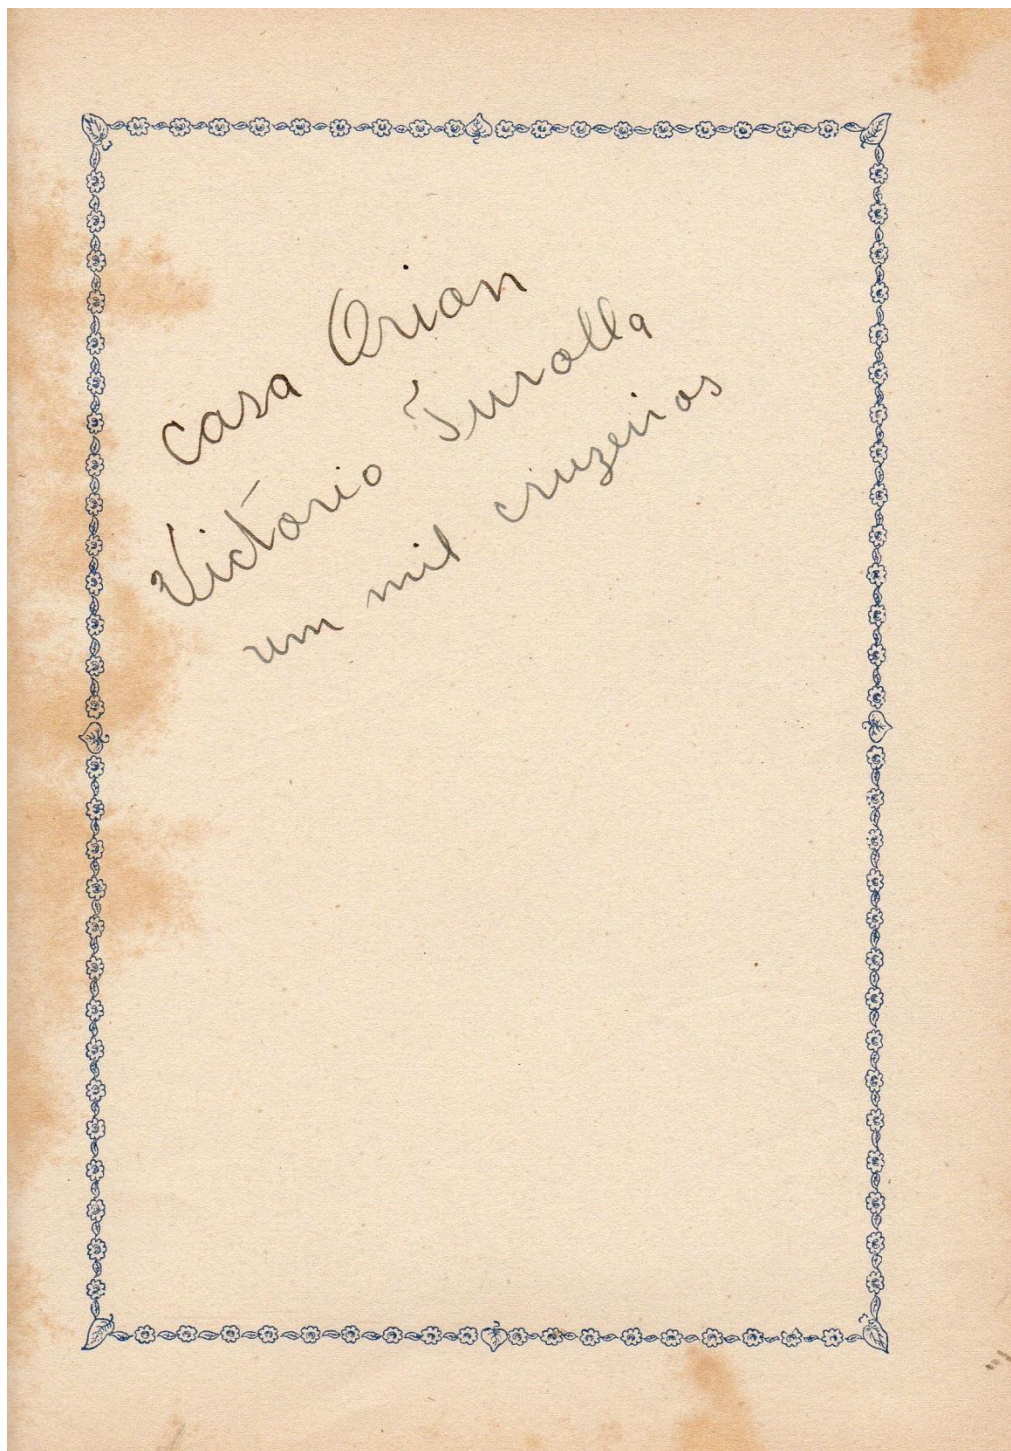 casa Orion
Victorio Turolla
um mil cruzeiros